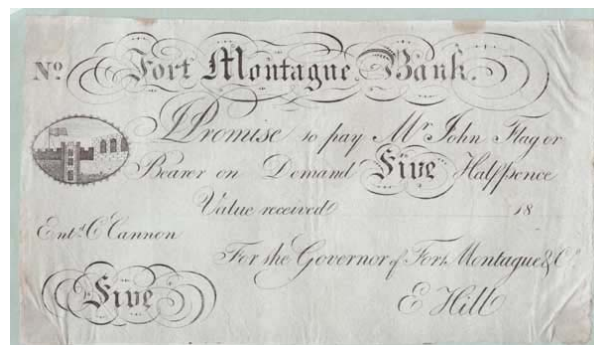 Nº Fort Montague Bank.
I Promise to pay Mr John Flag or
Bearer on Demand Five Halfpence
Value received 18
Entd C Cannon
For the Governor of Fort Montague & Co
Five
E Hill